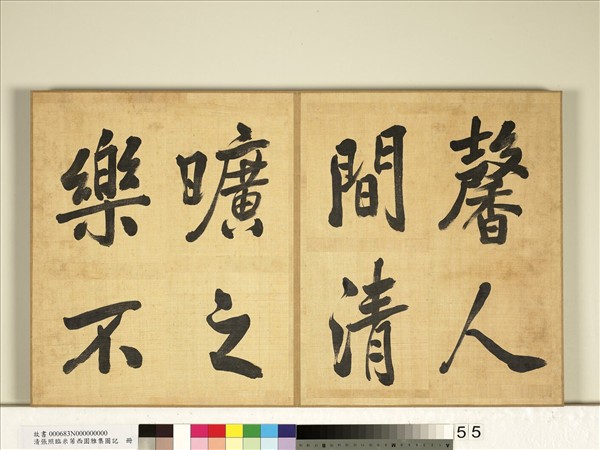 馨人
間清
曠之
樂不
故書 000683N000000000
清張照臨米芾西園雅集圖記 冊
55